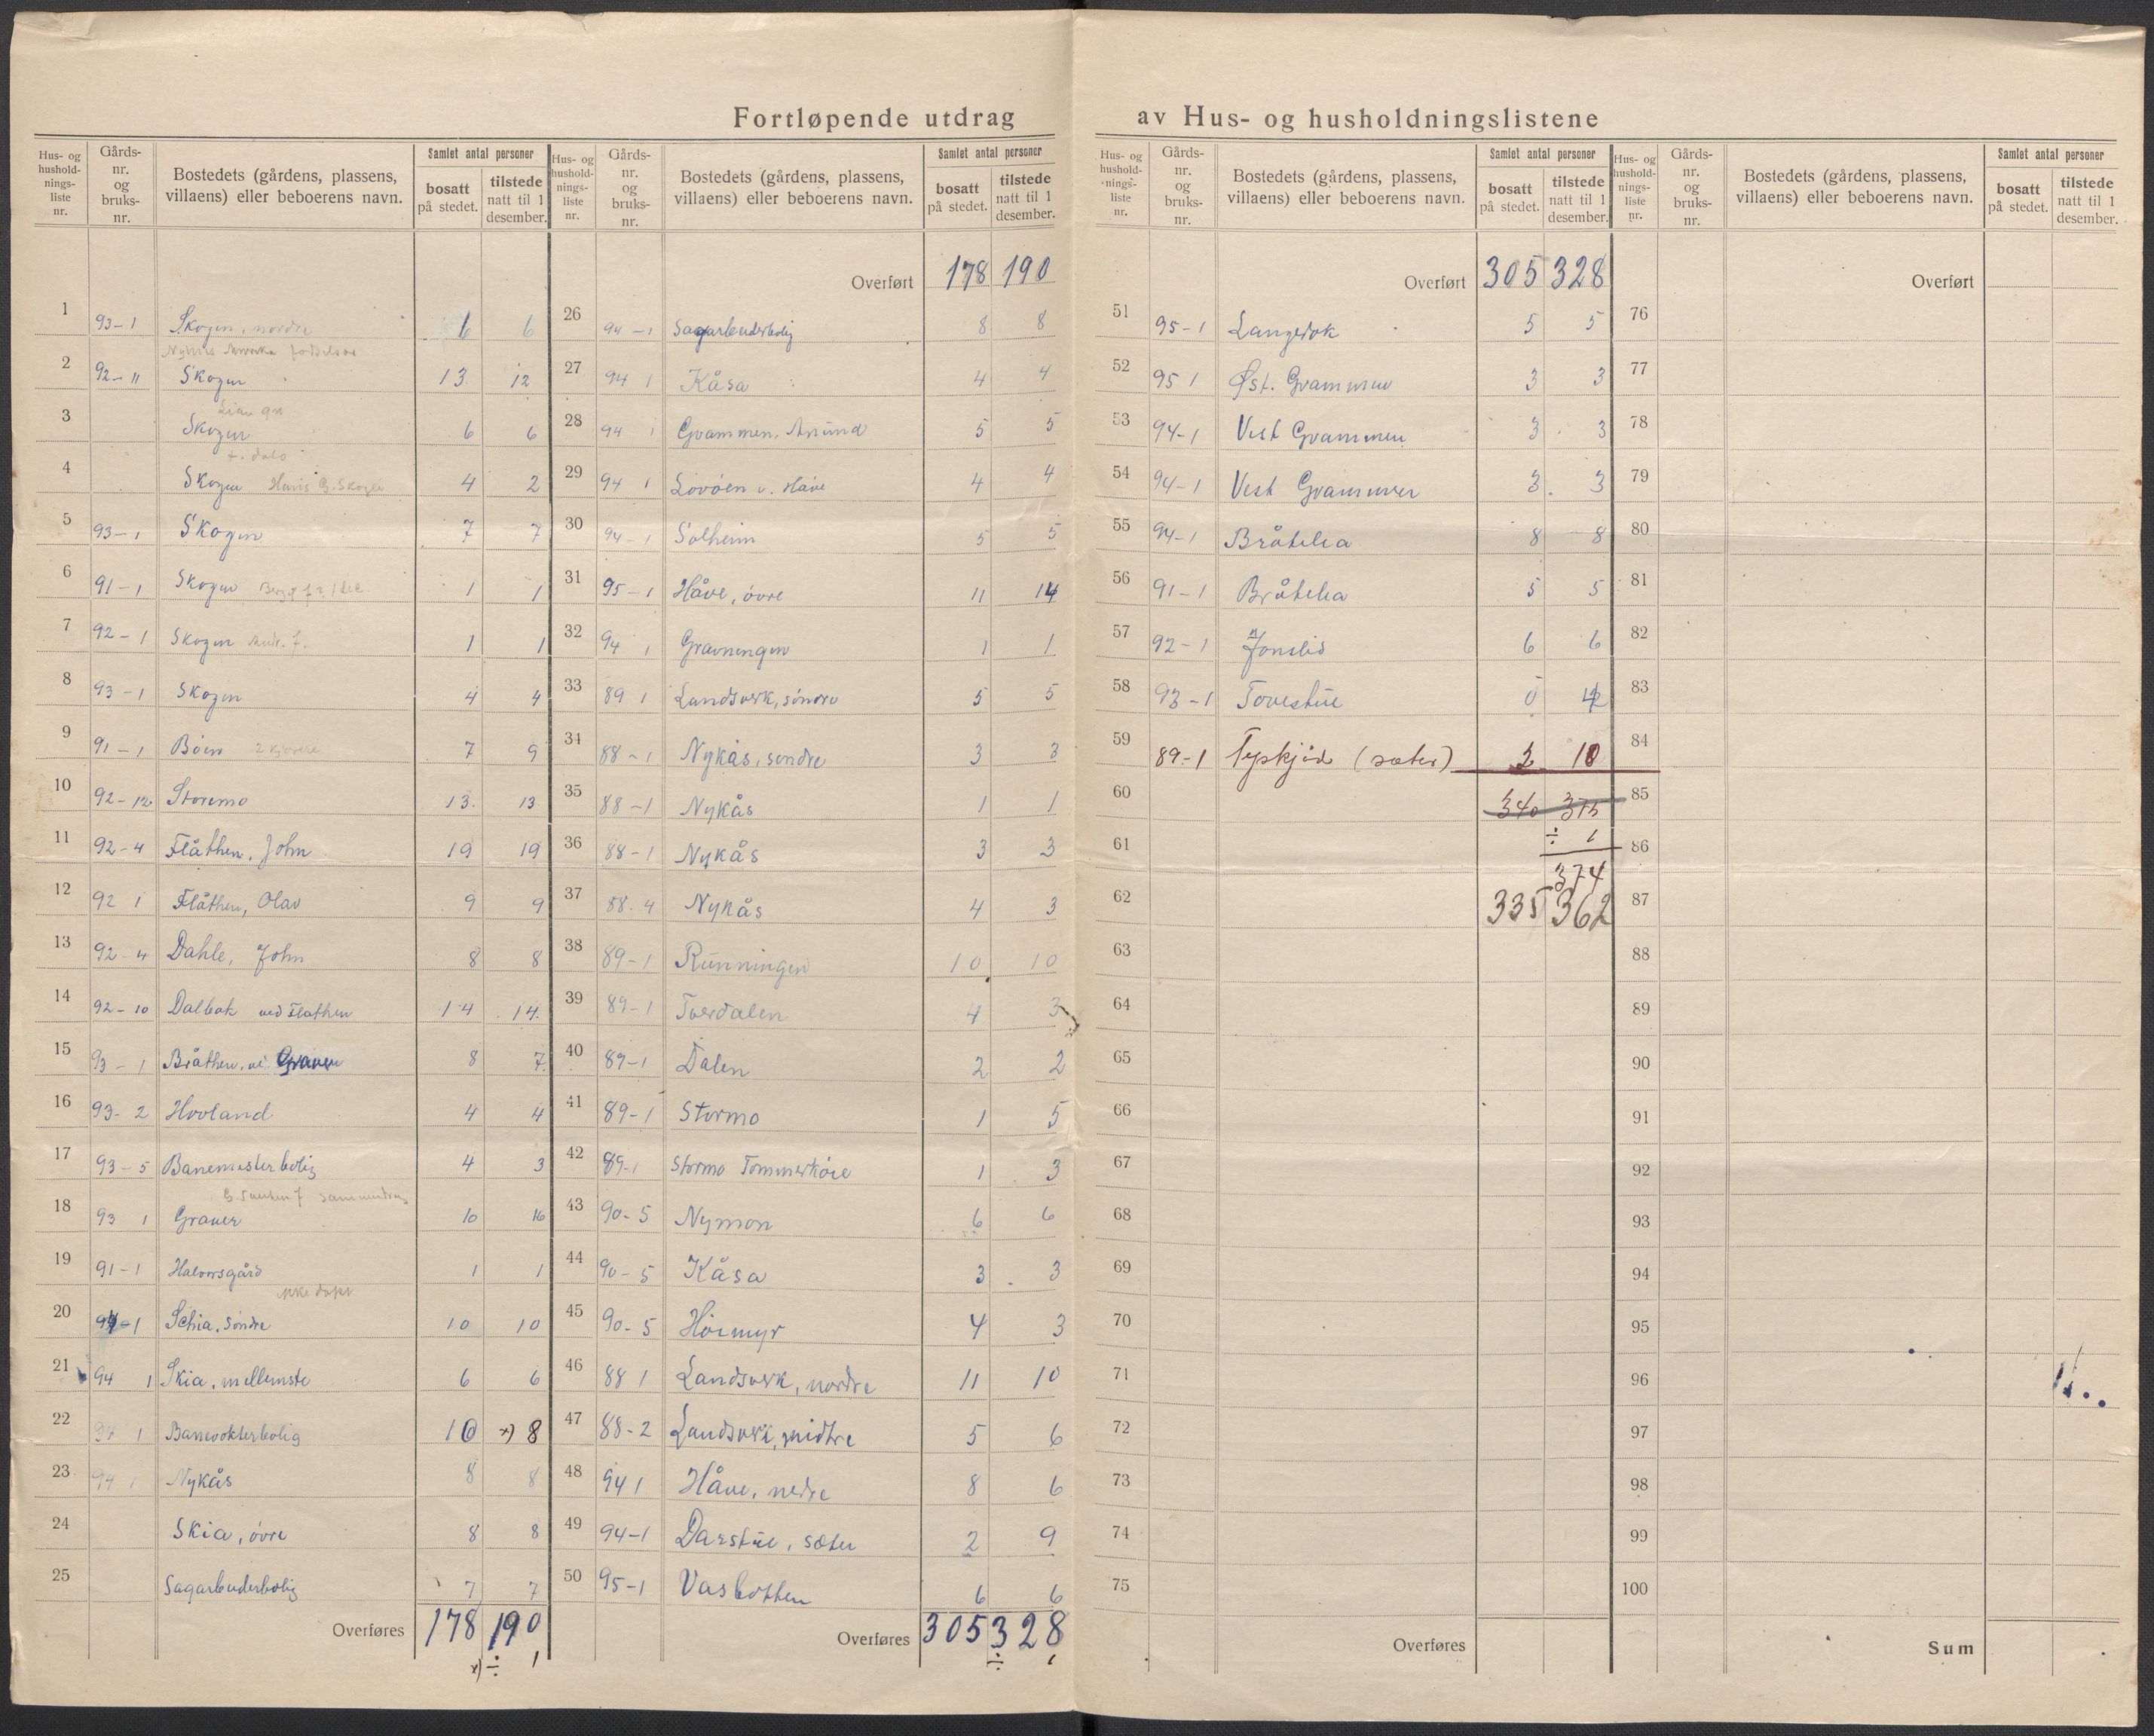 Fortløpende utdrag av Hus- og husholdningslistene
Hus- og husholdningsliste nr. | Gårds-nr. og bruks-nr. | Bostedets (gårdens, plassens, villaens) eller beboerens navn. | Samlet antal personer | bosatt på stedet. | tilstede natt til 1 desember.
1 93-1 Skogen, nordre 6 6
2 92-11 Skogen 13 12
3 Skogen 6 6
4 Skogen 4 2
5 93-1 Skogen 7 7
6 91-1 Skogen 1 1
7 92-1 Skogen 1 1
8 93-1 Skogen 4 4
9 91-1 Böen 7 9
10 92-12 Storemo 13 13
11 92-4 Flåthen, John 19 19
12 92 1 Flåthen, Olav 9 9
13 92-4 Dahle, John 8 8
14 92-10 Dalbak ved Flåthen 14 14
15 93-1 Bråthen, 8 7
16 93-2 Hovland 4 4
17 93-5 Banemesterbolig 4 3
18 93 1 Graver 10 16
19 91-1 Halvorsgård 1 1
ikke døpt
20 94-1 Schia, söndre 10 10
21 94 1 Skia, mellemste 6 6
22 94 1 Banevokterbolig 10 x) 8
23 94 1 Nykås 8 8
24 Skia, övre 8 8
25 Sagarbeiderbolig 7 7
Overføres 178 190
x) ÷ 1
Hus- og husholdningsliste nr. | Gårds-nr. og bruks-nr. | Bostedets (gårdens, plassens, villaens) eller beboerens navn. | Samlet antal personer | bosatt på stedet. | tilstede natt til 1 desember.
Overført 178 190
26 94-1 Sagarbeiderbolig 8 8
27 94 1 Kåsa 4 4
28 94 1 Gvammen, Amund 5 5
29 94 1 Lövöen v. Håve 4 4
30 94-1 Solheim 5 5
31 95-1 Håve, övre 11 14
32 94 1 Gravningen 1 1
33 89 1 Landsverk, söndre 5 5
34 88-1 Nykås, söndre 3 3
35 88-1 Nykås 1 1
36 88-1 Nykås 3 3
37 88-4 Nykås 4 3
38 89-1 Rünningen 10 10
39 89-1 Tverdalen 4 3
40 89-1 Dalen 2 2
41 89-1 Stormo 1 5
42 89-1 Stormo Tömmerkoie 1 3
43 90-5 Nymon 6 6
44 90-5 Kåsa 3 3
45 90-5 Höimyr 4 3
46 88 1 Landsverk, nordre 11 10
47 88-2 Landsverk, midtre 5 6
48 94 1 Håve, nedre 8 6
49 94-1 Darstüe, sæter 2 9
50 95-1 Vasbotten 6 6
Overføres 305 328
÷ 1
Hus- og husholdningsliste nr. | Gårds-nr. og bruks-nr. | Bostedets (gårdens, plassens, villaens) eller beboerens navn. | Samlet antal personer | bosatt på stedet. | tilstede natt til 1 desember.
Overført 305 328
51 95-1 Langebak 5 5
52 95 1 Øst. Gvammen 3 3
53 94-1 Vest Gvammen 3 3
54 94-1 Vest Gvammen 3 3
55 94-1 Bråtelia 8 8
56 91-1 Bråtelia 5 5
57 92-1 Jonslid 6 6
58 93-1 Tovestüe 0
59 89-1 (sæter) 2 10
60 340 375
61 ÷ 1
374
62 335 362
63
64
65
66
67
68
69
70
71
72
73
74
75
Overføres
Hus- og husholdningsliste nr. | Gårds-nr. og bruks-nr. | Bostedets (gårdens, plassens, villaens) eller beboerens navn. | Samlet antal personer | bosatt på stedet. | tilstede natt til 1 desember.
Overført
76
77
78
79
80
81
82
83
84
85
86
87
88
89
90
91
92
93
94
95
96
97
98
99
100
Sum